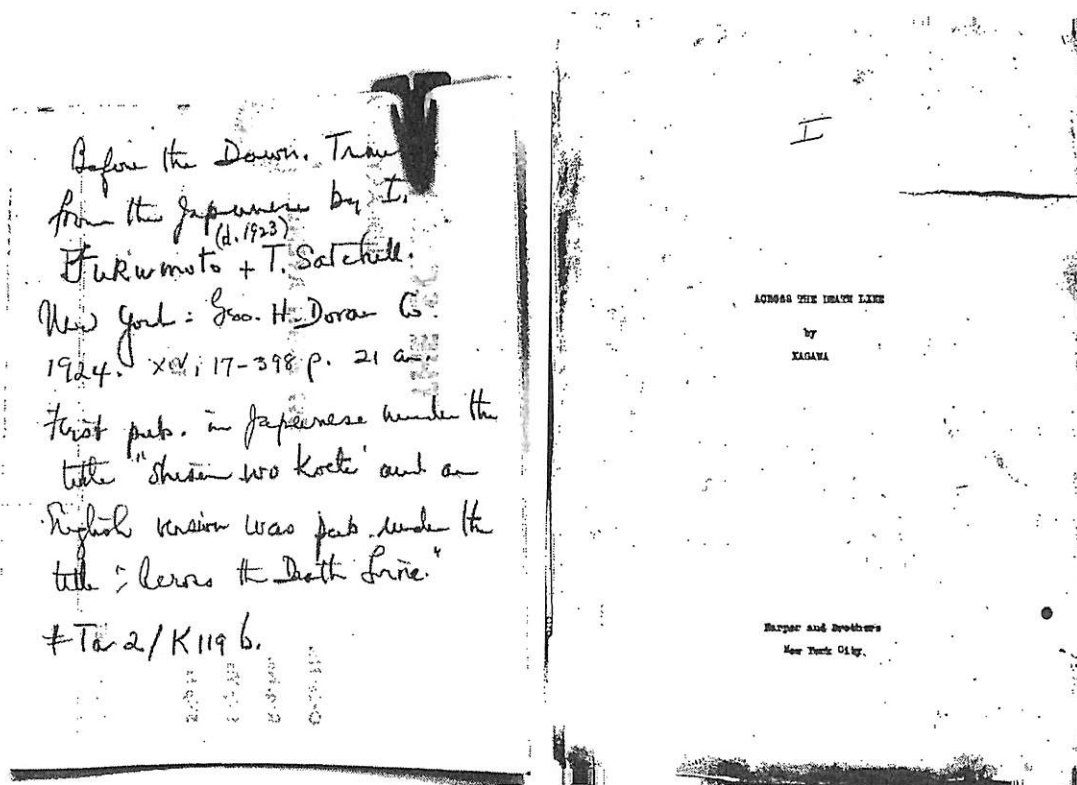 Before the Dawn. Trans
from the Japanese by I.
(d. 1923)
Fukumoto + T. Satchell.
New York: Geo. H. Doran Co.
1924. xv, 17-398 p. 21 cm.
First pub. in Japanese under the
title "Shisen wo Koete" and an
English version was pub. under the
title "Across the Death Line."
#Ta 2/K119 b.
I
ACROSS THE DEATH LINE
by
KAGAWA
Harper and Brothers
New York City.